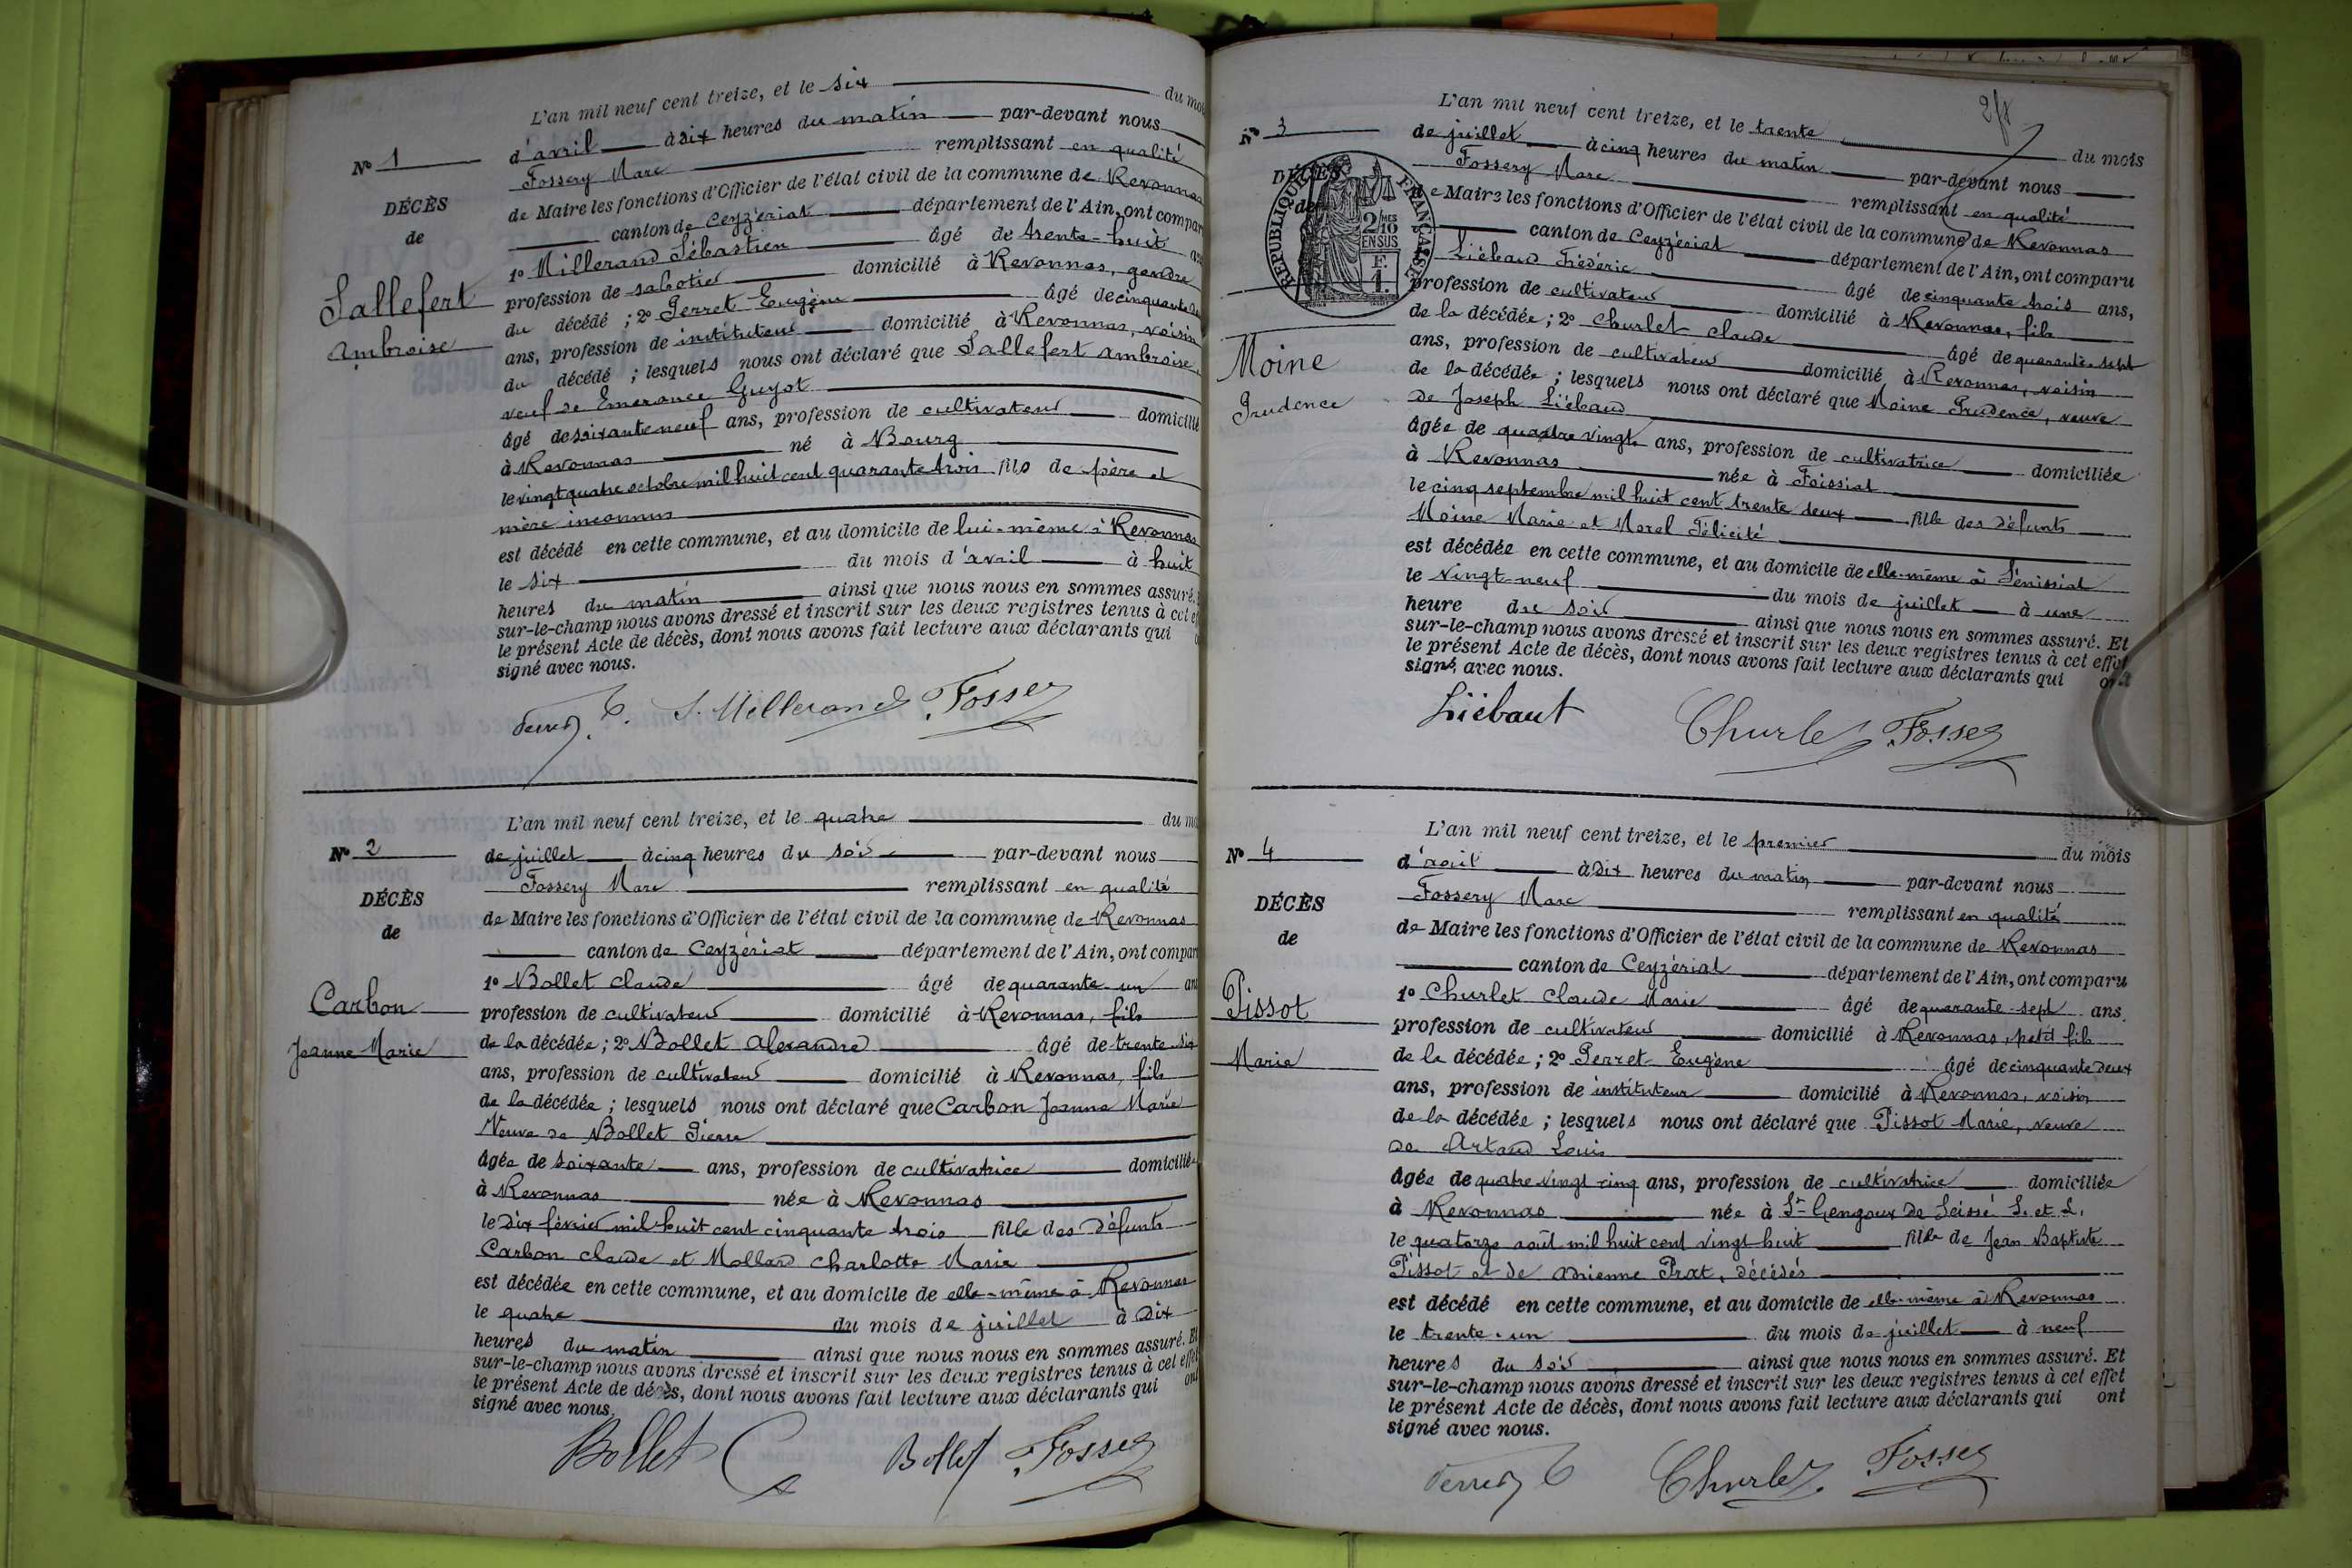 L'an mil neuf cent treize, et le six du mois
Nº 1
d'avril à dix heures du matin par-devant nous
Fossery Marc remplissant en qualité
DÉCÈS
de Maire les fonctions d'Officier de l'état civil de la commune de Revonnas
de
canton de Ceyzériat département de l'Ain, ont compar
1º Millerand Sébastien âgé de trente-huit
Sallefert
profession de sabotier domicilié à Revonnas, gendre
Ambroise
du décédé ; 2º Perret Eugène âgé de cinquante
ans, profession de instituteur domicilié à Revonnas, voisin
du décédé ; lesquels nous ont déclaré que Sallefert Ambroise,
veuf de Emerance Guyot
âgé de soixante neuf ans, profession de cultivateur domicilié
à Revonnas né à Bourg
le vingt quatre octobre mil huit cent quarante trois fils de père et
mère inconnus
est décédé en cette commune, et au domicile de lui-même à Revonnas
le six du mois d'avril à huit
heures du matin ainsi que nous nous en sommes assuré.
sur-le-champ nous avons dressé et inscrit sur les deux registres tenus à cet
le présent Acte de décès, dont nous avons fait lecture aux déclarants qui
signé avec nous.
Perret E. S. Millerand Fossery
L'an mil neuf cent treize, et le quatre du
Nº 2
de juillet à cinq heures du soir par-devant nous
Fossery Marc remplissant en qualité
DÉCÈS
de Maire les fonctions d'Officier de l'état civil de la commune de Revonnas
de
canton de Ceyzériat département de l'Ain, ont compar
1º Bollet Claude âgé de quarante-un ans
Carbon
profession de cultivateur domicilié à Revonnas, fils
Jeanne-Marie
de la décédée ; 2º Bollet Alexandre âgé de trente-six
ans, profession de cultivateur domicilié à Revonnas, fils
de la décédée ; lesquels nous ont déclaré que Carbon Jeanne Marie
Veuve de Bollet Pierre
âgée de soixante ans, profession de cultivatrice domiciliée
à Revonnas née à Revonnas
le dix février mil huit cent cinquante trois fille des défunts
Carbon Claude et Mollard Charlotte Marie
est décédée en cette commune, et au domicile de elle-même à Revonnas
le quatre du mois de juillet à dix
heures du matin ainsi que nous nous en sommes assuré. Et
sur-le-champ nous avons dressé et inscrit sur les deux registres tenus à cet effet
le présent Acte de décès, dont nous avons fait lecture aux déclarants qui ont
signé avec nous.
Bollet C Bollet Fossery
L'an mil neuf cent treize, et le trente du mois
Nº 3
de juillet à cinq heures du matin par-devant nous
Fossery Marc remplissant en qualité
DÉCÈS
de Maire les fonctions d'Officier de l'état civil de la commune de Revonnas
de
RÉPUBLIQUE FRANÇAISE
2/10 EN SUS
F. 1.
canton de Ceyzériat département de l'Ain, ont comparu
Liébaud Frédéric âgé de cinquante trois ans,
profession de cultivateur domicilié à Revonnas, fils
de la décédée ; 2º Churlet Claude âgé de quarante-sept
Moine
ans, profession de cultivateur domicilié à Revonnas, voisin
Prudence
de la décédée ; lesquels nous ont déclaré que Moine Prudence, veuve
de Joseph Liébaud
âgée de quatre vingts ans, profession de cultivatrice domiciliée
à Revonnas née à Foissiat
le cinq septembre mil huit cent trente deux fille des défunts
Moine Marie et Morel Félicité
est décédée en cette commune, et au domicile de elle-même à Sénissiat
le vingt-neuf du mois de juillet à une
heure du soir ainsi que nous nous en sommes assuré. Et
sur-le-champ nous avons dressé et inscrit sur les deux registres tenus à cet effet
le présent Acte de décès, dont nous avons fait lecture aux déclarants qui ont
signé avec nous.
Liébaut Churlet Fossery
L'an mil neuf cent treize, et le premier du mois
Nº 4
d'août à dix heures du matin par-devant nous
Fossery Marc remplissant en qualité
DÉCÈS
de Maire les fonctions d'Officier de l'état civil de la commune de Revonnas
de
canton de Ceyzériat département de l'Ain, ont comparu
1º Churlet Claude Marie âgé de quarante-sept ans,
Pissot
profession de cultivateur domicilié à Revonnas, petit fils
Marie
de la décédée ; 2º Perret Eugène âgé de cinquante deux
ans, profession de instituteur domicilié à Revonnas, voisin
de la décédée ; lesquels nous ont déclaré que Pissot Marie, veuve
de Artaud Louis
âgée de quatre vingt-cinq ans, profession de cultivatrice domiciliée
à Revonnas née à St Gengoux de Scissé S. et L.
le quatorze août mil huit cent vingt huit fille de Jean Baptiste
Pissot et de Adrienne Prat, décédés
est décédé en cette commune, et au domicile de elle-même à Revonnas
le trente-un du mois de juillet à neuf
heures du soir ainsi que nous nous en sommes assuré. Et
sur-le-champ nous avons dressé et inscrit sur les deux registres tenus à cet effet
le présent Acte de décès, dont nous avons fait lecture aux déclarants qui ont
signé avec nous.
Perret E Churlet Fossery